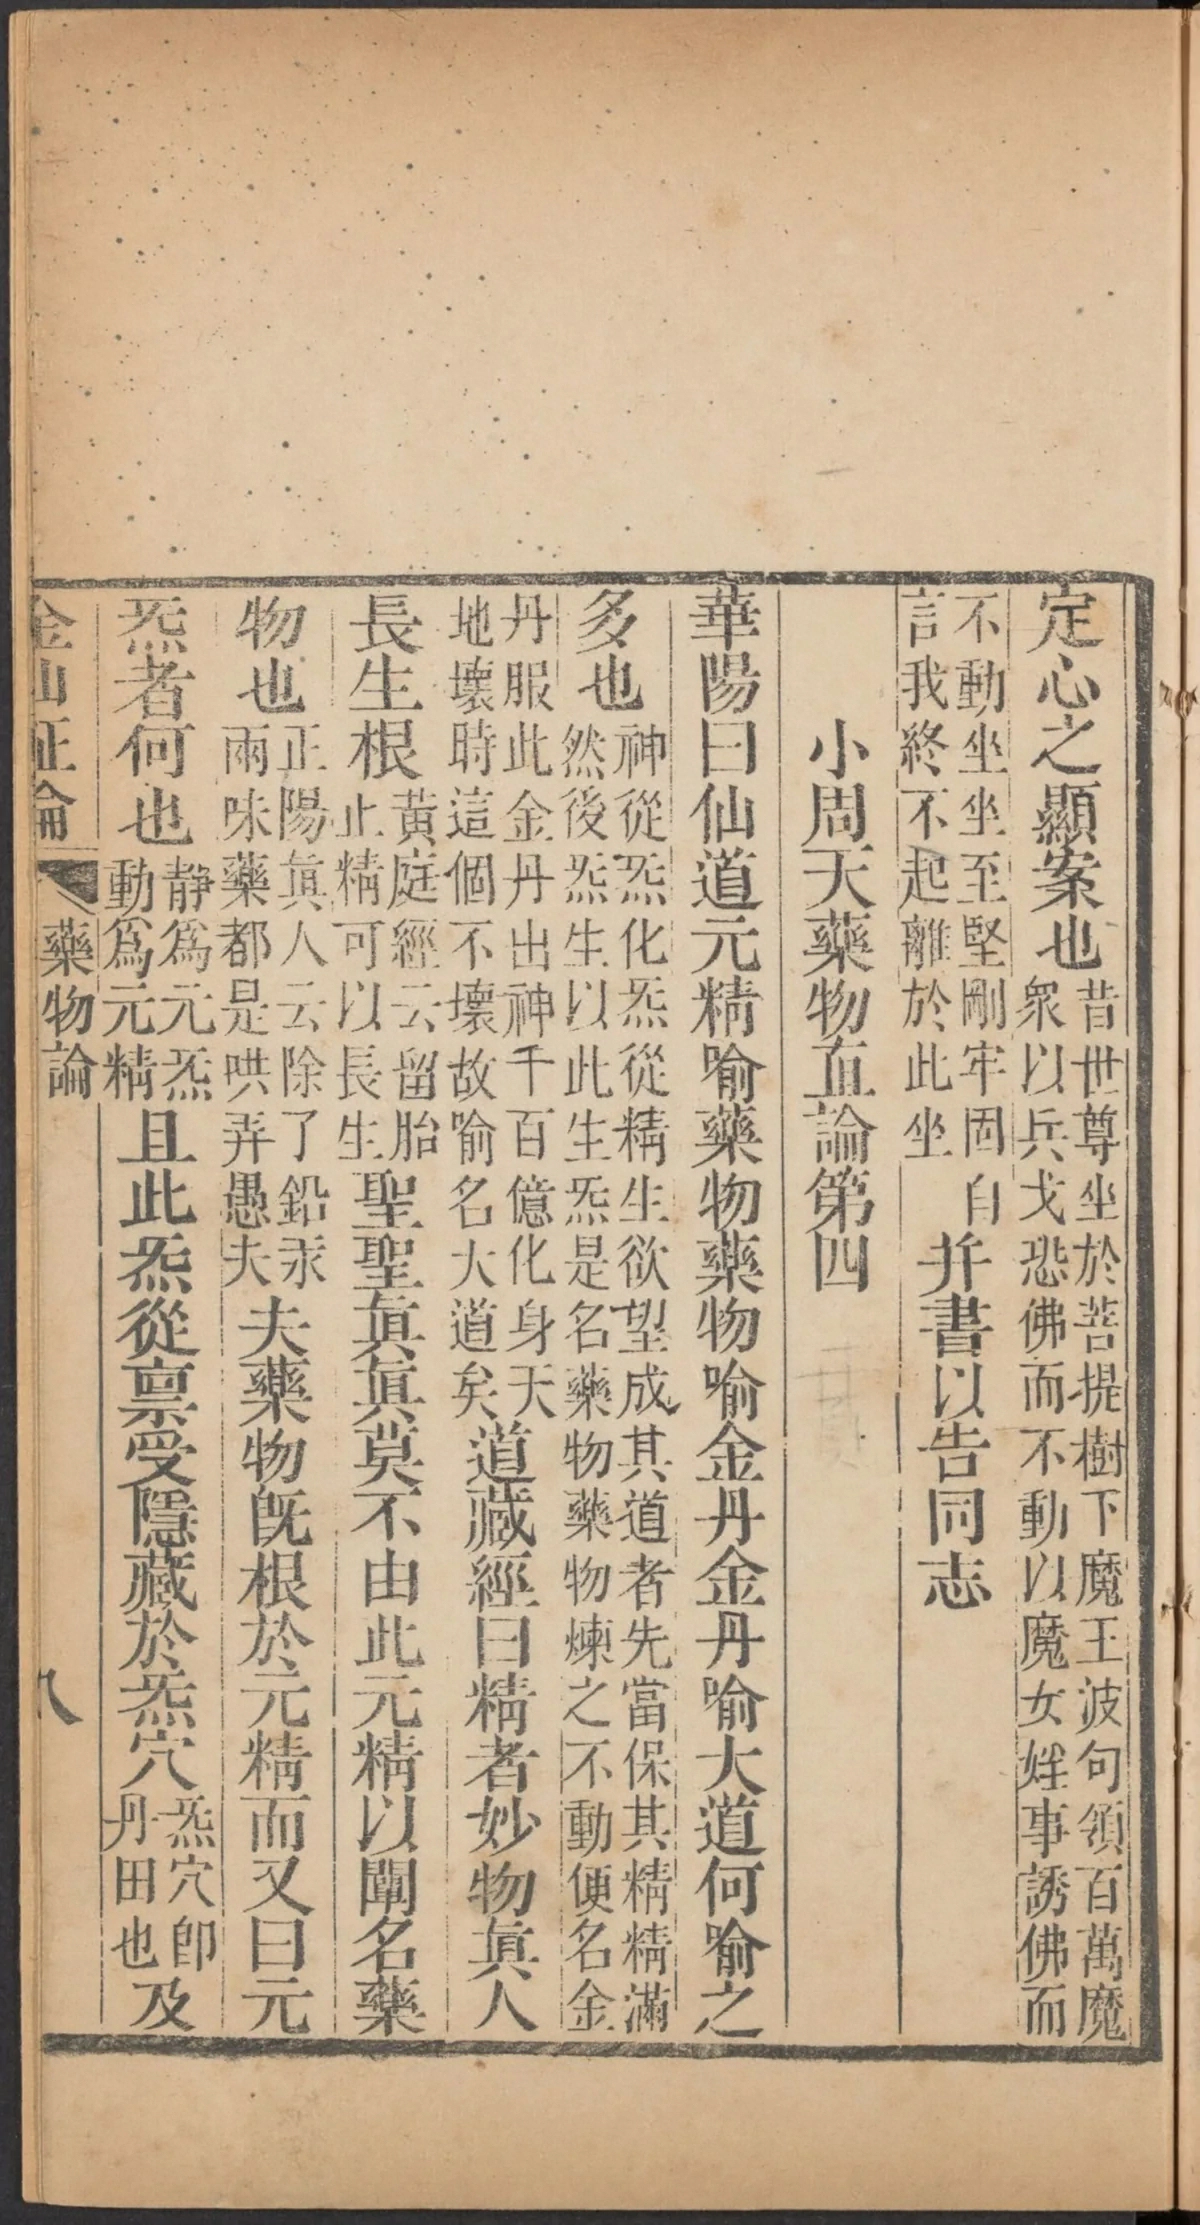 定心之顯案也昔世尊坐於菩提樹下魔王波句領百萬魔衆以兵戈恐佛而不動以魔女婬事誘佛而
不動坐坐至堅剛牢固自言我終不起離於此坐并書以告同志
小周天藥物直論第四
華陽曰仙道元精喻藥物藥物喻金丹金丹喻大道何喻之
多也神從炁化炁從精生欲望成其道者先當保其精精滿然後炁生以此生炁是名藥物藥物煉之不動便名金
丹服此金丹出神千百億化身天地壞時這個不壞故喻名大道矣道藏經曰精者妙物眞人
長生根黃庭經云留胎止精可以長生聖聖眞眞莫不由此元精以闡名藥
物也正陽眞人云除了鉛汞兩味藥都是哄弄愚夫夫藥物旣根於元精而又曰元
炁者何也静爲元炁動爲元精且此炁從禀受隱藏於炁穴炁穴卽丹田也及
金仙証論 藥物論 八